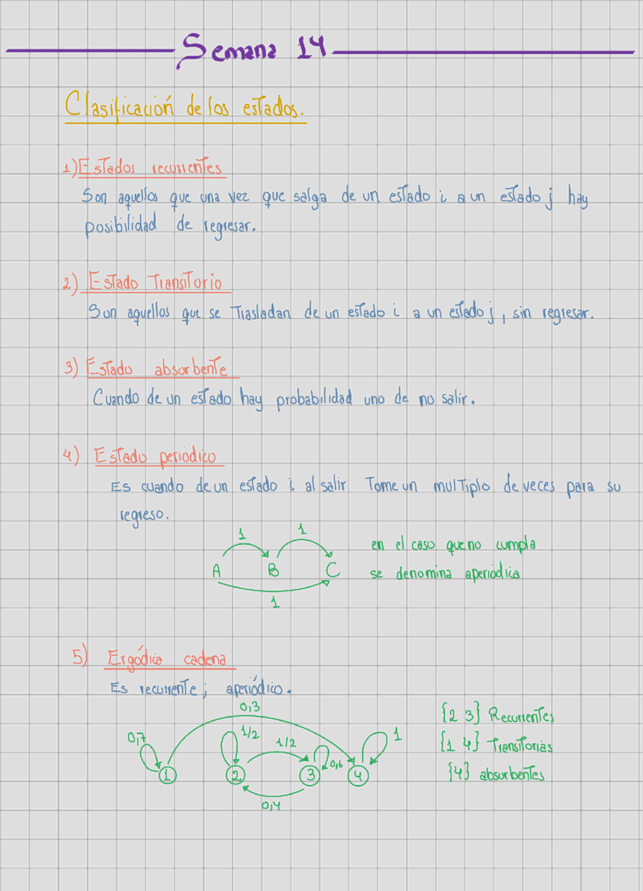 Semana 14
Clasificación de los estados.
1) Estados recurrentes
Son aquellos que una vez que salga de un estado i a un estado j hay
posibilidad de regresar.
2) Estado Transitorio
Son aquellos que se Trasladan de un estado i a un estado j, sin regresar.
3) Estado absorbente
Cuando de un estado hay probabilidad uno de no salir.
4) Estado periodico
Es cuando de un estado i al salir Tome un multiplo de veces para su
regreso.
1 1
A B C
1
en el caso que no cumpla
se denomina aperiódica
5) Ergódica cadena
Es recurrente; aperiódico.
0,3
0,7 1/2 1/2 0,6 1
1 2 3 4
0,4
{2 3} Recurrentes
{1 4} Transitorias
{4} absorbentes